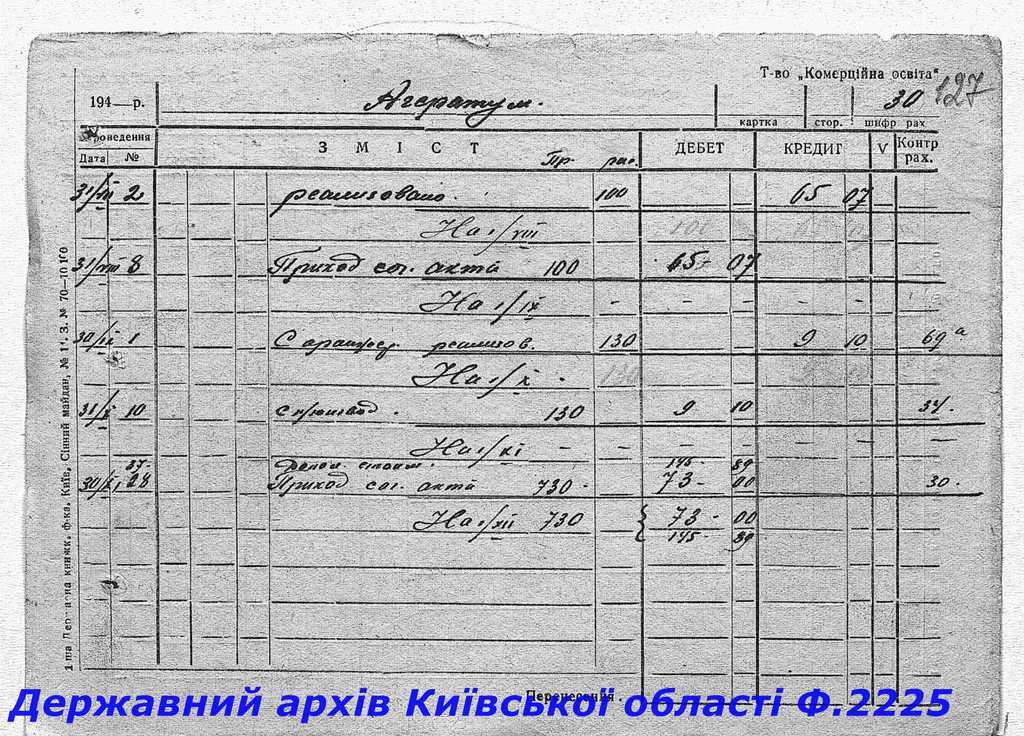 Т-во „Комерційна освіта“
127
194 — р. Агератум. 30
картка стор. шифр рах
Проведення
Дата № ЗМІСТ Пр. рас. ДЕБЕТ КРЕДИТ V Контр рах.
31/VII 2 реализовано. 100 65 07
На 1/VIII 100 65 07
31/VIII 8 Приход сог. акта 100 65- 07
На 1/IX - - - - - -
30/IX 1 С оранжер. реализов. 130 9 10 69а
На 1/X - 130 9 10
31/X 10 130 9 10 34.
На 1/XI - - - - - -
37- 145- 89
30/XI 28 Приход сог. акта 730- 73- 00 30-
На 1/XII 730 { 73- 00
145- 89
Перенесення.
1-ша Державна книжк. ф-ка, Київ, Сінний майдан, № 1. З. № 70—10 100
Державний архів Київської області Ф.2225